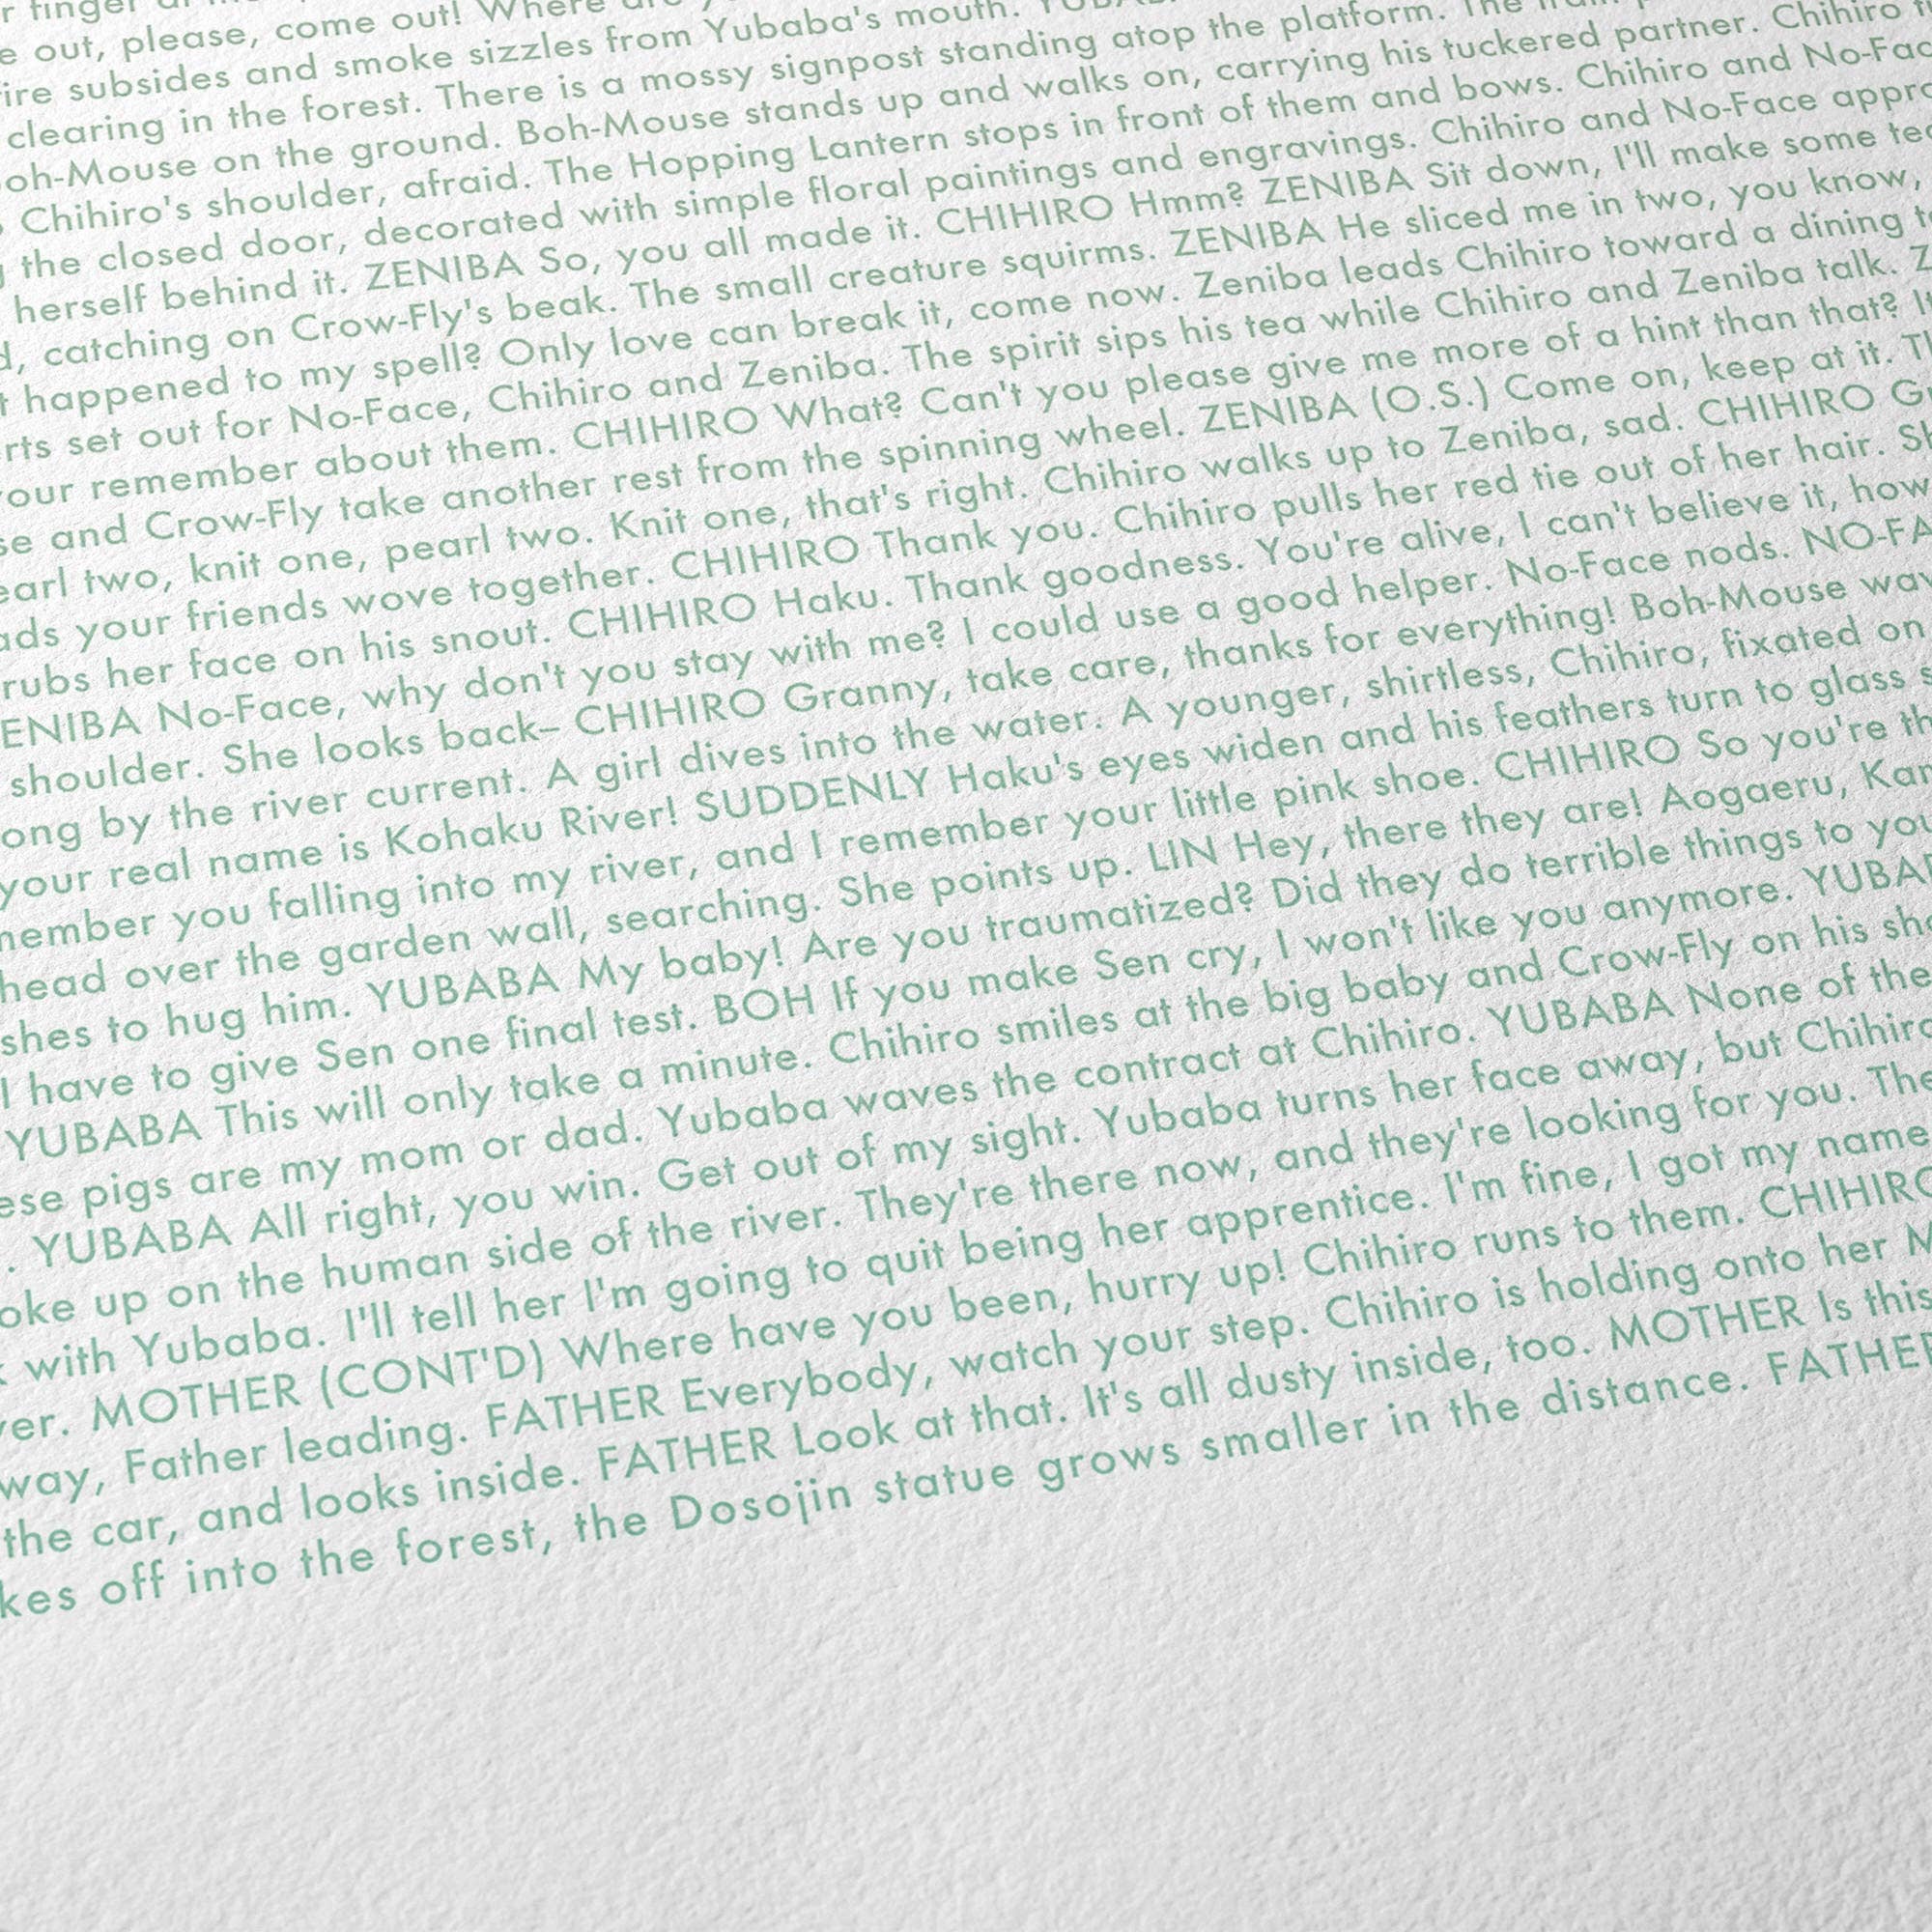 finger
e out, please, come out! Where
ire subsides and smoke sizzles from Yubaba's mouth.
clearing in the forest. There is a mossy signpost standing atop the platform. The
oh-Mouse on the ground. Boh-Mouse stands up and walks on, carrying his tuckered partner. Chihiro
Chihiro's shoulder, afraid. The Hopping Lantern stops in front of them and bows. Chihiro and No-Fac
the closed door, decorated with simple floral paintings and engravings. Chihiro and No-Face appro
herself behind it. ZENIBA So, you all made it. CHIHIRO Hmm? ZENIBA Sit down, I'll make some te
d, catching on Crow-Fly's beak. The small creature squirms. ZENIBA He sliced me in two, you know,
t happened to my spell? Only love can break it, come now. Zeniba leads Chihiro toward a dining
rts set out for No-Face, Chihiro and Zeniba. The spirit sips his tea while Chihiro and Zeniba talk. Z
our remember about them. CHIHIRO What? Can't you please give me more of a hint than that?
se and Crow-Fly take another rest from the spinning wheel. ZENIBA (O.S.) Come on, keep at it. Th
earl two, knit one, pearl two. Knit one, that's right. Chihiro walks up to Zeniba, sad. CHIHIRO G
ads your friends wove together. CHIHIRO Thank you. Chihiro pulls her red tie out of her hair. Sh
rubs her face on his snout. CHIHIRO Haku. Thank goodness. You're alive, I can't believe it, how
ENIBA No-Face, why don't you stay with me? I could use a good helper. No-Face nods. NO-FA
shoulder. She looks back– CHIHIRO Granny, take care, thanks for everything! Boh-Mouse wav
ong by the river current. A girl dives into the water. A younger, shirtless, Chihiro, fixated on
your real name is Kohaku River! SUDDENLY Haku's eyes widen and his feathers turn to glass s
member you falling into my river, and I remember your little pink shoe. CHIHIRO So you're th
head over the garden wall, searching. She points up. LIN Hey, there they are! Aogaeru, Kam
shes to hug him. YUBABA My baby! Are you traumatized? Did they do terrible things to you
I have to give Sen one final test. BOH If you make Sen cry, I won't like you anymore. YUBA
YUBABA This will only take a minute. Chihiro smiles at the big baby and Crow-Fly on his sh
ese pigs are my mom or dad. Yubaba waves the contract at Chihiro. YUBABA None of the
. YUBABA All right, you win. Get out of my sight. Yubaba turns her face away, but Chihiro
oke up on the human side of the river. They're there now, and they're looking for you. The
with Yubaba. I'll tell her I'm going to quit being her apprentice. I'm fine, I got my name
ver. MOTHER (CONT'D) Where have you been, hurry up! Chihiro runs to them. CHIHIRO
way, Father leading. FATHER Everybody, watch your step. Chihiro is holding onto her M
the car, and looks inside. FATHER Look at that. It's all dusty inside, too. MOTHER Is this
kes off into the forest, the Dosojin statue grows smaller in the distance. FATHER